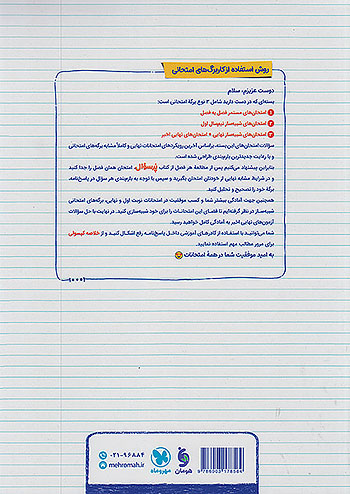 روش استفاده از کاربرگ‌های امتحانی
دوست عزیزم، سلام
بسته‌ای که در دست دارید شامل ۳ نوع برگهٔ امتحانی است:
۱ امتحان‌های مستمر فصل به فصل
۲ امتحان‌های شبیه‌ساز نیم‌سال اول
۳ امتحان‌های شبیه‌ساز نهایی + امتحان‌های نهایی اخیر
سؤالات امتحان‌های این بسته، براساس آخرین رویکردهای امتحانات نهایی و کاملاً مشابه برگه‌های امتحانی
و با رعایت جدیدترین بارم‌بندی طراحی شده است.
بنابراین پیشنهاد می‌کنیم پس از مطالعهٔ هر فصل از کتاب پُرسؤال، امتحان همان فصل را جدا کنید
و در شرایط مشابه نهایی از خودتان امتحان بگیرید و سپس با توجه به بارم‌بندی هر سؤال در پاسخ‌نامه،
برگهٔ خود را تصحیح و تحلیل کنید.
همچنین جهت آمادگی بیشتر شما و کسب موفقیت در امتحانات نوبت اول و نهایی، برگه‌های امتحانی
شبیه‌ساز در نظر گرفته‌ایم تا فضای این امتحانات را برای خود شبیه‌سازی کنید. در نهایت با حل سؤالات
آزمون‌های نهایی اخیر به آمادگی کامل خواهید رسید.
شما می‌توانید با استفاده از کادرهای آموزشی داخل پاسخ‌نامه رفع اشکال کنید و از خلاصه کپسولی
برای مرور مطالب مهم استفاده نمایید.
به امید موفقیت شما در همهٔ امتحانات
۰۲۱-۹۶۸۸۴
mehromah.ir
مهروماه
هومان
9786003178564